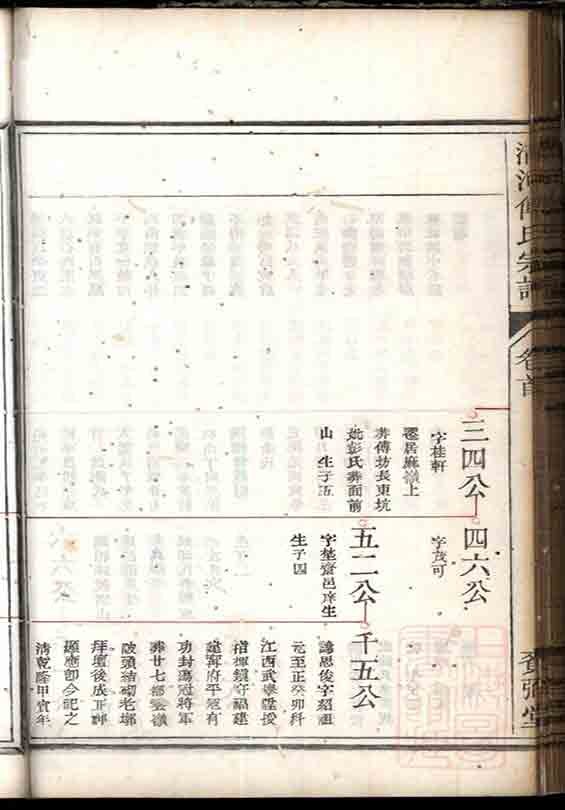 清河傅氏宗譜
卷首
三四公
字桂軒
遷居麻嶺上
葬傅坊長東坑
妣彭氏葬面前
山 生子五
四六公
字茂可
五二公
字埜齋邑庠生
生子四
千五公
諱思俊字紹祖
元至正癸卯科
江西武舉授
指揮鎮守福建
建寧府平寇有
功封蕩寇將軍
葬廿七都
陂頭結砌老墳
拜壇後成正神
顯應卽今記之
清乾隆甲寅年